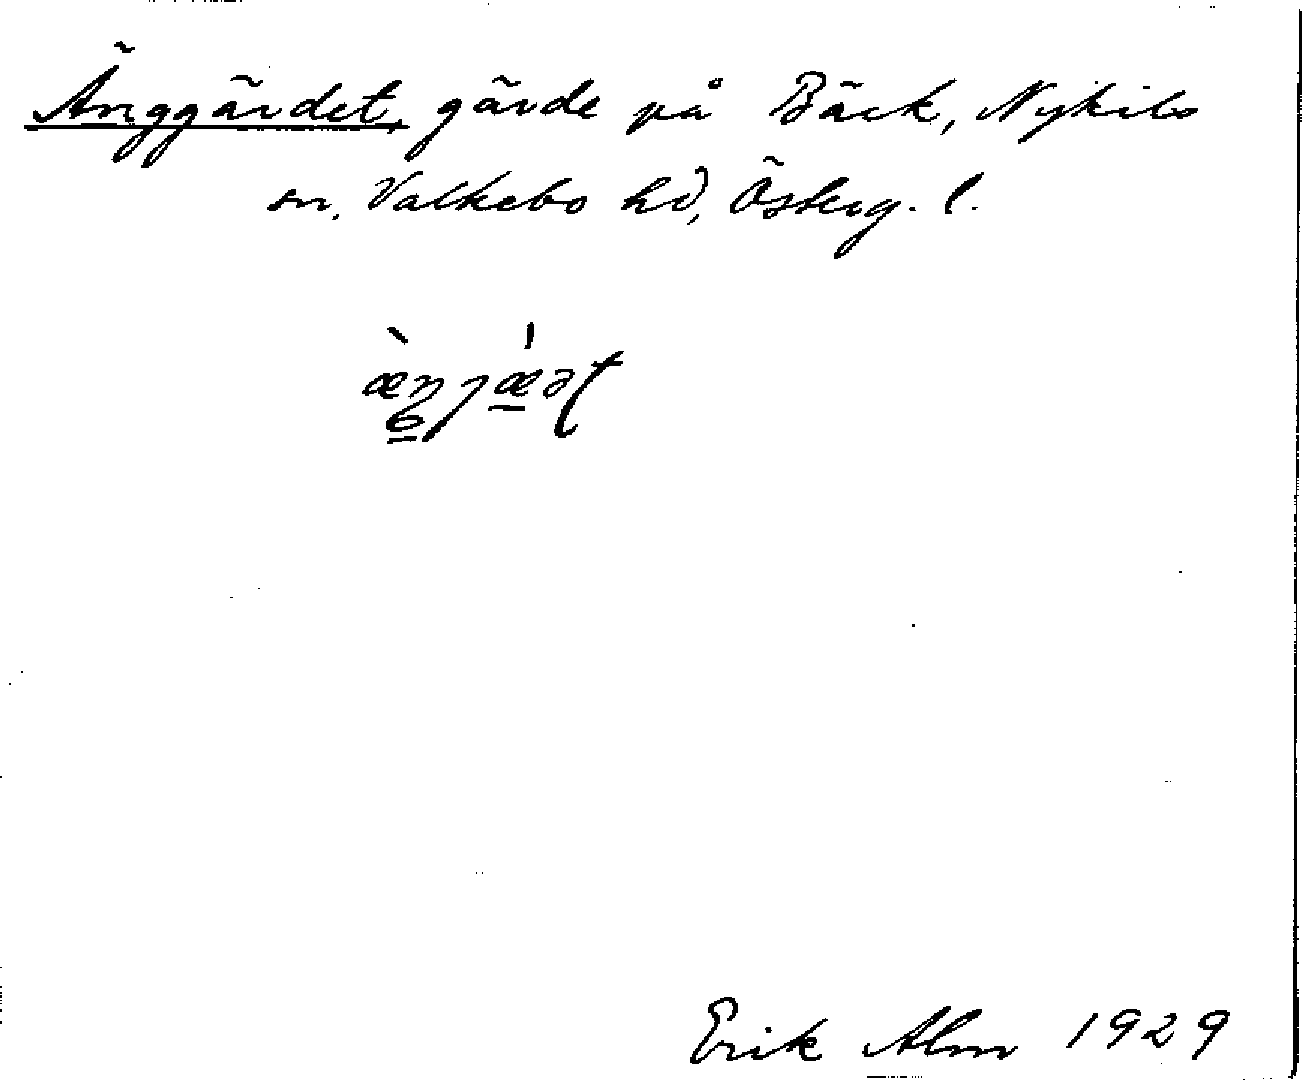 Änggärdet, gärde på Bäck, Nykils
sn, Valkebo hd, Österg. l.
Erik Alm 1929